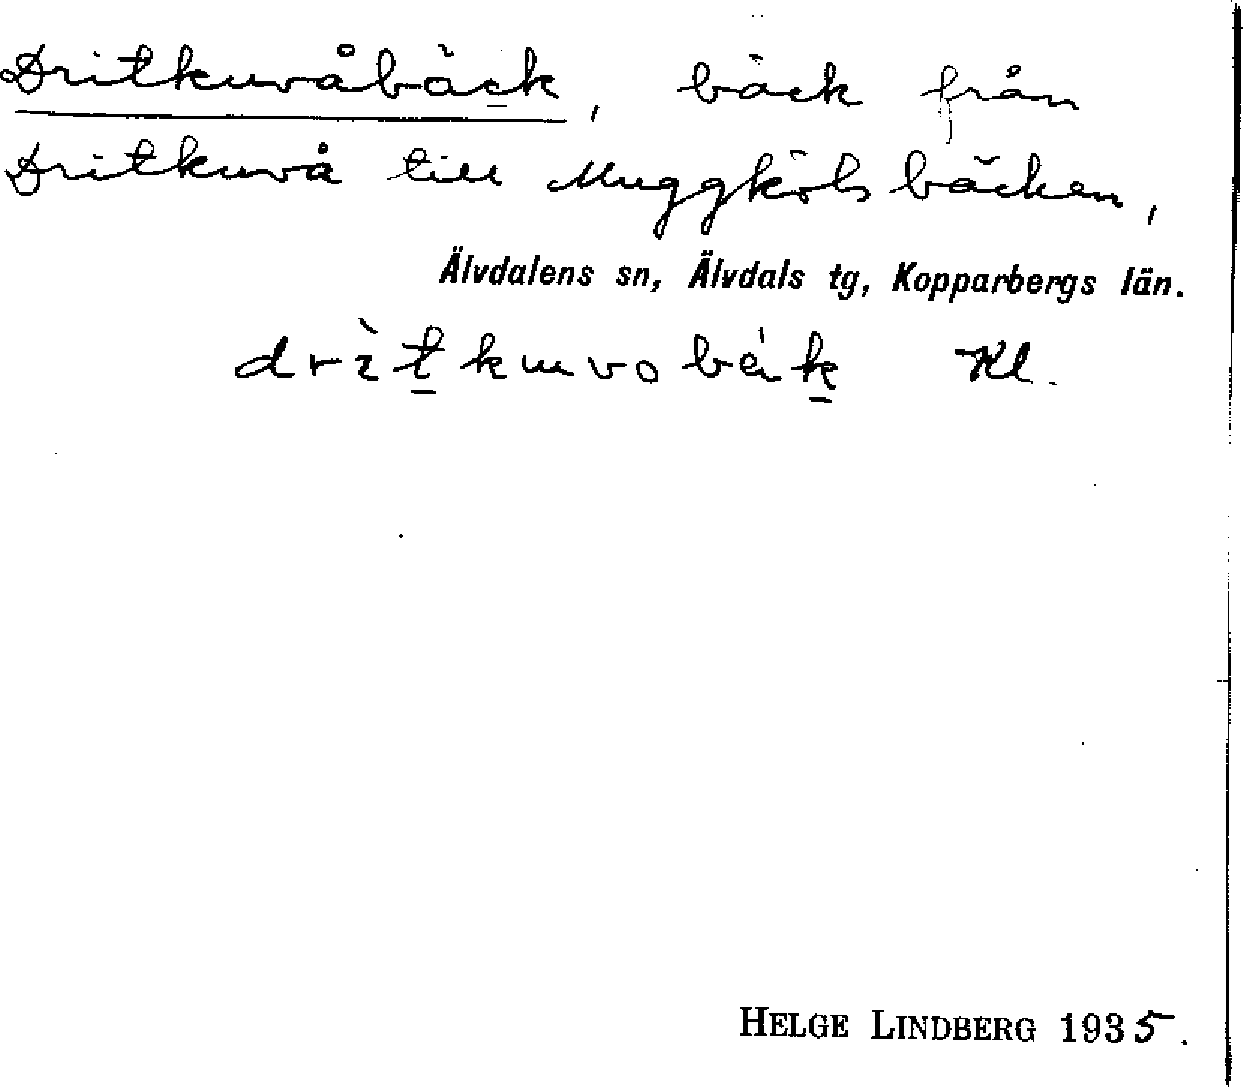 Dritkuvåbäck, bäck från
Dritkuvå till Muggkölsbäcken,
Älvdalens sn, Älvdals tg, Kopparbergs län.
drìt̲kuvobäk̲ Kl.
HELGE LINDBERG 1935.